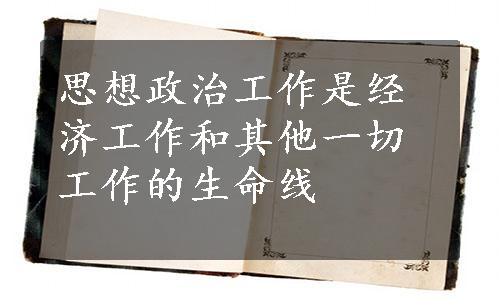 思想政治工作是经
济工作和其他一切
工作的生命线